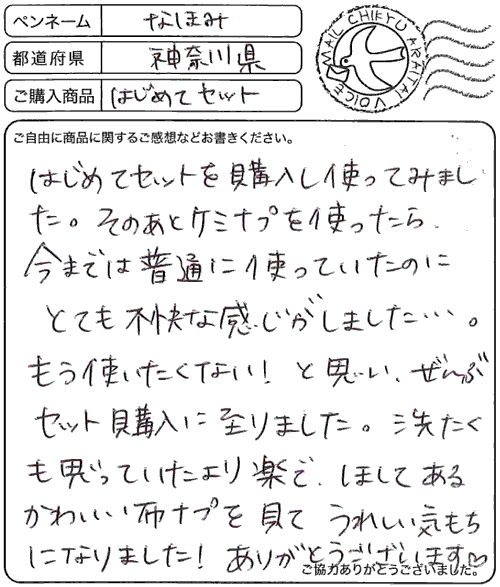 ペンネーム なほみ
都道府県 神奈川県
ご購入商品 はじめてセット
MAIL CHIKYU ARAITAI VOICE
ご自由に商品に関するご感想などお書きください。
はじめてセットを購入し使ってみまし
た。そのあとケミナプを使ったら、
今までは普通に使っていたのに
とても不快な感じがしました…。
もう使いたくない！と思い、ぜんぶ
セット購入に至りました。洗たく
も思っていたより楽で、ほしてある
かわいい布ナプを見て うれしい気もち
になりました！ありがとうございます♡
ご協力ありがとうございました。